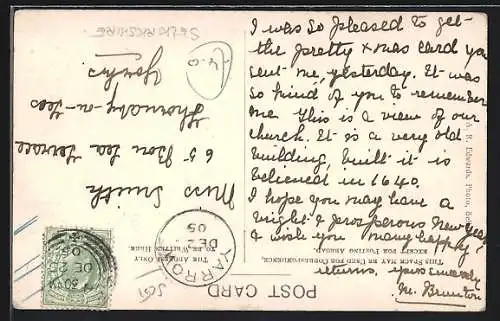 SELKIRKSHIRE
4.0
I was so pleased to get
the pretty xmas card you
sent me, yesterday. It was
so kind of you to remember
me this is a view of our
church. It is a very old
building, built it is
believed in 1640.
I hope you may have a
bright & prosperous New Year
& wish you many happy
returns, yours sincerely
M. Brunton
Miss Smith
65 Bon Lea Terrace
Thornaby-on-Tees
Yorks
POST CARD
THIS SPACE MAY BE USED FOR CORRESPONDENCE,
EXCEPT FOR POSTING ABROAD.
THE ADDRESS ONLY
TO BE WRITTEN HERE.
A. R. Edwards, Photo,
YARROW
DE
05